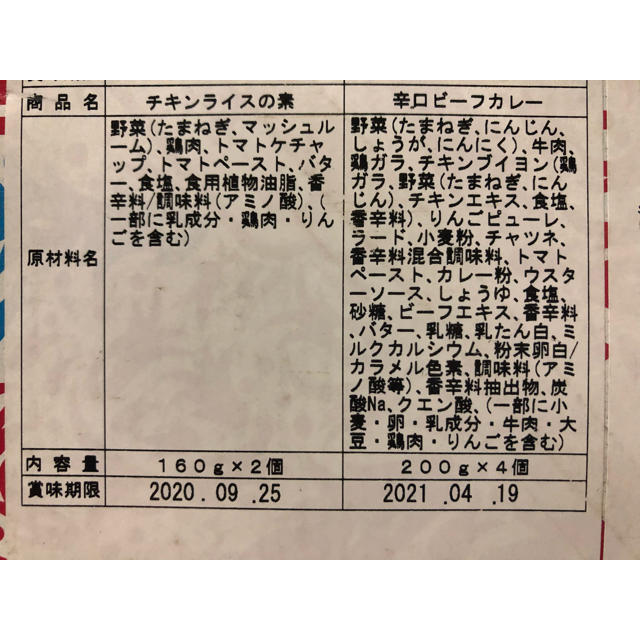 商品名 チキンライスの素 辛口ビーフカレー
原材料名
野菜(たまねぎ、マッシュル
ーム)、鶏肉、トマトケチャ
ップ、トマトペースト、バタ
ー、食塩、食用植物油脂、香
辛料/調味料(アミノ酸)、(
一部に乳成分・鶏肉・りん
ごを含む)
野菜(たまねぎ、にんじん、
しょうが、にんにく)、牛肉、
鶏ガラ、チキンブイヨン(鶏
ガラ、野菜(たまねぎ、にん
じん)、チキンエキス、食塩、
香辛料)、りんごピューレ、
ラード、小麦粉、チャツネ、
香辛料混合調味料、トマト
ペースト、カレー粉、ウスタ
ーソース、しょうゆ、食塩、
砂糖、ビーフエキス、香辛料
、バター、乳糖、乳たん白、ミ
ルクカルシウム、粉末卵白/
カラメル色素、調味料(アミ
ノ酸等)、香辛料抽出物、炭
酸Na、クエン酸、(一部に小
麦・卵・乳成分・牛肉・大
豆・鶏肉・りんごを含む)
内容量 160g×2個 200g×4個
賞味期限 2020.09.25 2021.04.19